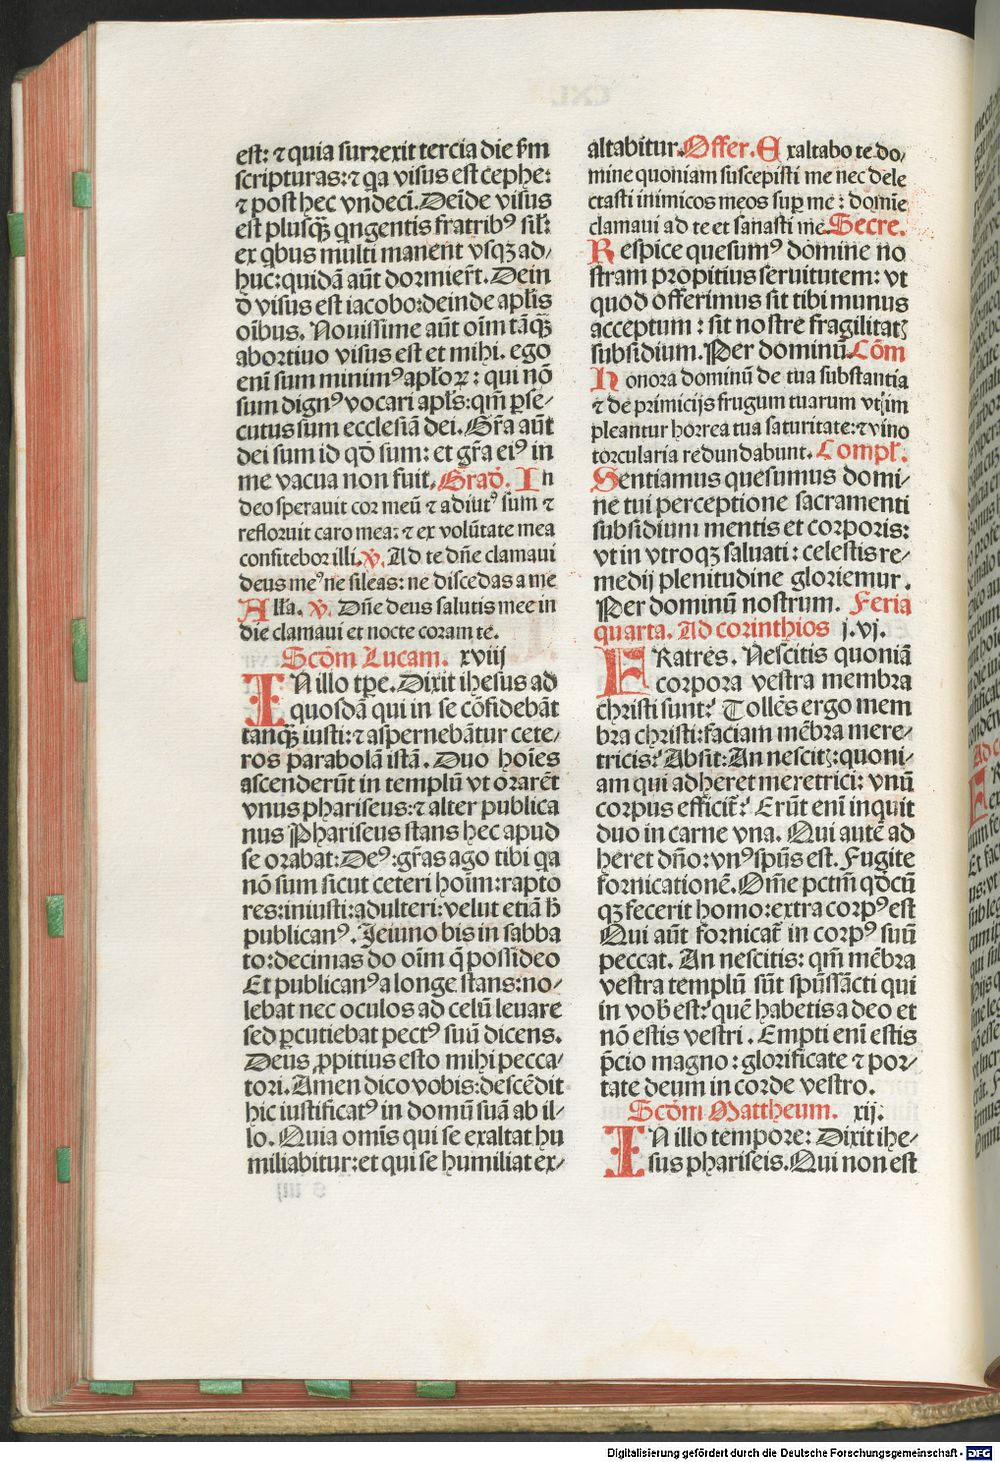 est: ⁊ quia surrexit tercia die ẜm
scripturas: ⁊ qa visus est cephe:
⁊ post hec vndeci. Deīde visus
est plusqꝫ qngentis fratribꝰ sil̄:
ex qbus multi manent vsqꝫ ad⸗
huc: quidā aūt dormier̄t. Dein
d̄ visus est iacobo: deinde apl̄is
oībus. Nouissime aūt oīm tāqꝫ
abortiuo visus est et mihi. ego
enī sum minimꝰ apl̄oꝝ: qui nō
sum dignꝰ vocari apl̄s: qm̄ ꝑse⸗
cutus sum ecclesiā dei. Gr̄a aūt
dei sum id qd̄ sum: et gr̄a eiꝰ in
me vacua non fuit. Grad̄. In
deo sperauit cor meū ⁊ adiutꝰ sum ⁊
refloruit caro mea: ⁊ ex volūtate mea
confitebor illi. ℣. Ad te dn̄e clamaui
deus meꝰ ne sileas: ne discedas a me
All̄a. ℣. Dn̄e deus salutis mee in
die clamaui et nocte coram te.
Scd̄m Lucam. xviij
IN illo tp̄e. Dixit ihesus ad
quosdā qui in se cōfidebāt
tanqꝫ iusti: ⁊ aspernebātur cete⸗
ros parabolā istā. Duo hoīes
ascenderūt in templū vt orarēt
vnus phariseus: ⁊ alter publica
nus Phariseus stans hec apud
se orabat: Deꝰ: gr̄as ago tibi qa
nō sum sicut ceteri hoīm: rapto
res: iniusti: adulteri: velut etiā h̄
publicanꝰ. Jeiuno bis in sabba
to: decimas do oīm q̄ possideo
Et publicanꝰ a longe stans: no⸗
lebat nec oculos ad celū leuare
sed ꝑcutiebat pectꝰ suū dicens.
Deus ꝓpitius esto mihi pecca⸗
tori. Amen dico vobis: descēdit
hic iustificatꝰ in domū suā ab il⸗
lo. Quia omīs qui se exaltat hu
miliabitur: et qui se humiliat ex⸗
altabitur. Offer. Exaltabo te do⸗
mine quoniam suscepisti me nec dele
ctasti inimicos meos suꝑ me: domīe
clamaui ad te et sanasti me. Secre.
Respice quesumꝰ domine no
stram propitius seruitutem: vt
quod offerimus sit tibi munus
acceptum: sit nostre fragilitatꝭ
subsidium. Per dominū. Cōm
Honora dominū de tua substantia
⁊ de primicijs frugum tuarum vt im
pleantur horrea tua saturitate: ⁊ vino
torcularia redundabunt. Compl̄.
Sentiamus quesumus domi⸗
ne tui perceptione sacramenti
subsidium mentis et corporis:
vt in vtroqꝫ saluati: celestis re⸗
medij plenitudine gloriemur.
Per dominū nostrum. Feria
quarta. Ad corinthios j. vj.
FRatres. Nescitis quoniā
corpora vestra membra
christi sunt? Tollēs ergo mem
bra christi: faciam mēbra mere⸗
tricis? Absit: An nescitꝭ: quoni⸗
am qui adheret meretrici: vnū
corpus efficit̄? Erūt enī inquit
duo in carne vna. Qui autē ad
heret dn̄o: vnꝰ spūs est. Fugite
fornicationē. Om̄e pctm̄ qd̄cū
qꝫ fecerit homo: extra corpꝰ est
Qui aūt fornicat̄ in corpꝰ suū
peccat. An nescitis: qm̄ mēbra
vestra templū sūt spūssācti qui
in vob̄ est? quē habetis a deo et
nō estis vestri. Empti enī estis
p̄cio magno: glorificate ⁊ por⸗
tate deum in corde vestro.
Scd̄m Mattheum. xij.
IN illo tempore: Dixit ihe⸗
sus phariseis. Qui non est
Digitalisierung gefördert durch die Deutsche Forschungsgemeinschaft - DFG